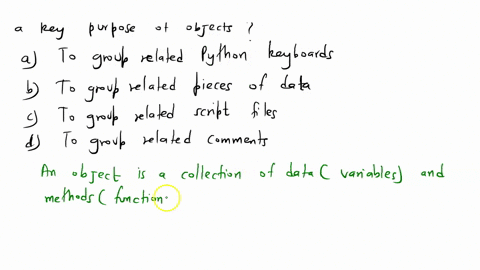 a key purpose of objects ?
a) To group related Python keyboards
b) To group related pieces of data
c) To group related script files
d) To group related comments
An object is a collection of data ( variables) and
methods ( function